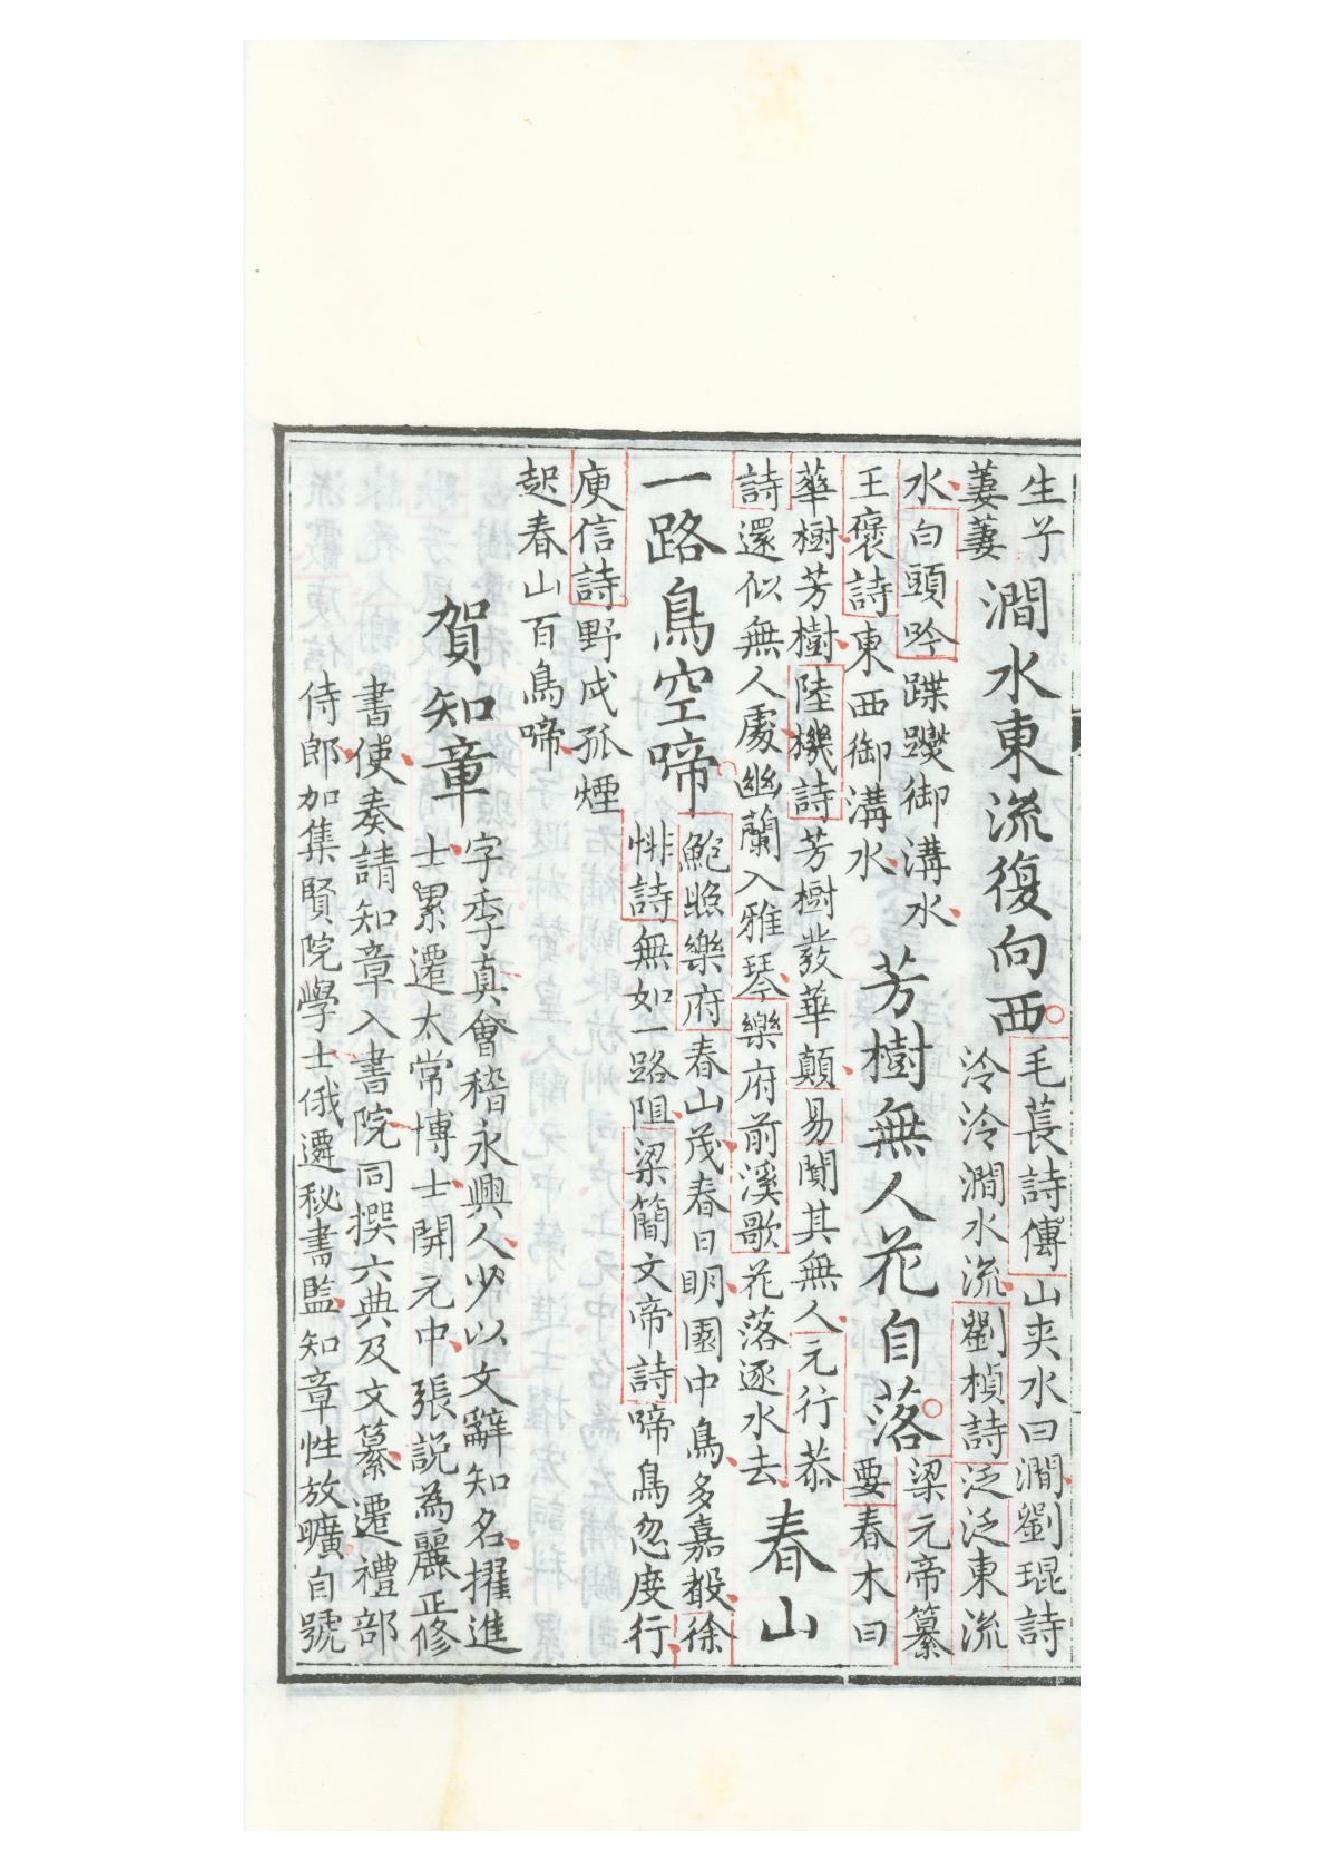 生子
萋萋
澗水東流復向西
毛萇詩傳山夾水曰澗劉琨詩
泠泠澗水流劉楨詩泛泛東流
水白頭吟蹀躞御溝水
王褒詩東西御溝水
芳樹無人花自落
梁元帝纂
要春木曰
華樹芳樹陸機詩芳樹發華顛易闃其無人元行恭
詩還似無人處幽蘭入雅琴樂府前溪歌花落逐水去
春山
一路鳥空啼
鮑照樂府春山茂春日明園中鳥多嘉聲徐
悱詩無如一路阻梁簡文帝詩啼鳥忽度行
庾信詩野戍孤煙
起春山百鳥啼
賀知章
字季真會稽永興人少以文辭知名擢進
士累遷太常博士開元中張說為麗正修
書使奏請知章入書院同撰六典及文纂遷禮部
侍郎加集賢院學士俄遷秘書監知章性放曠自號